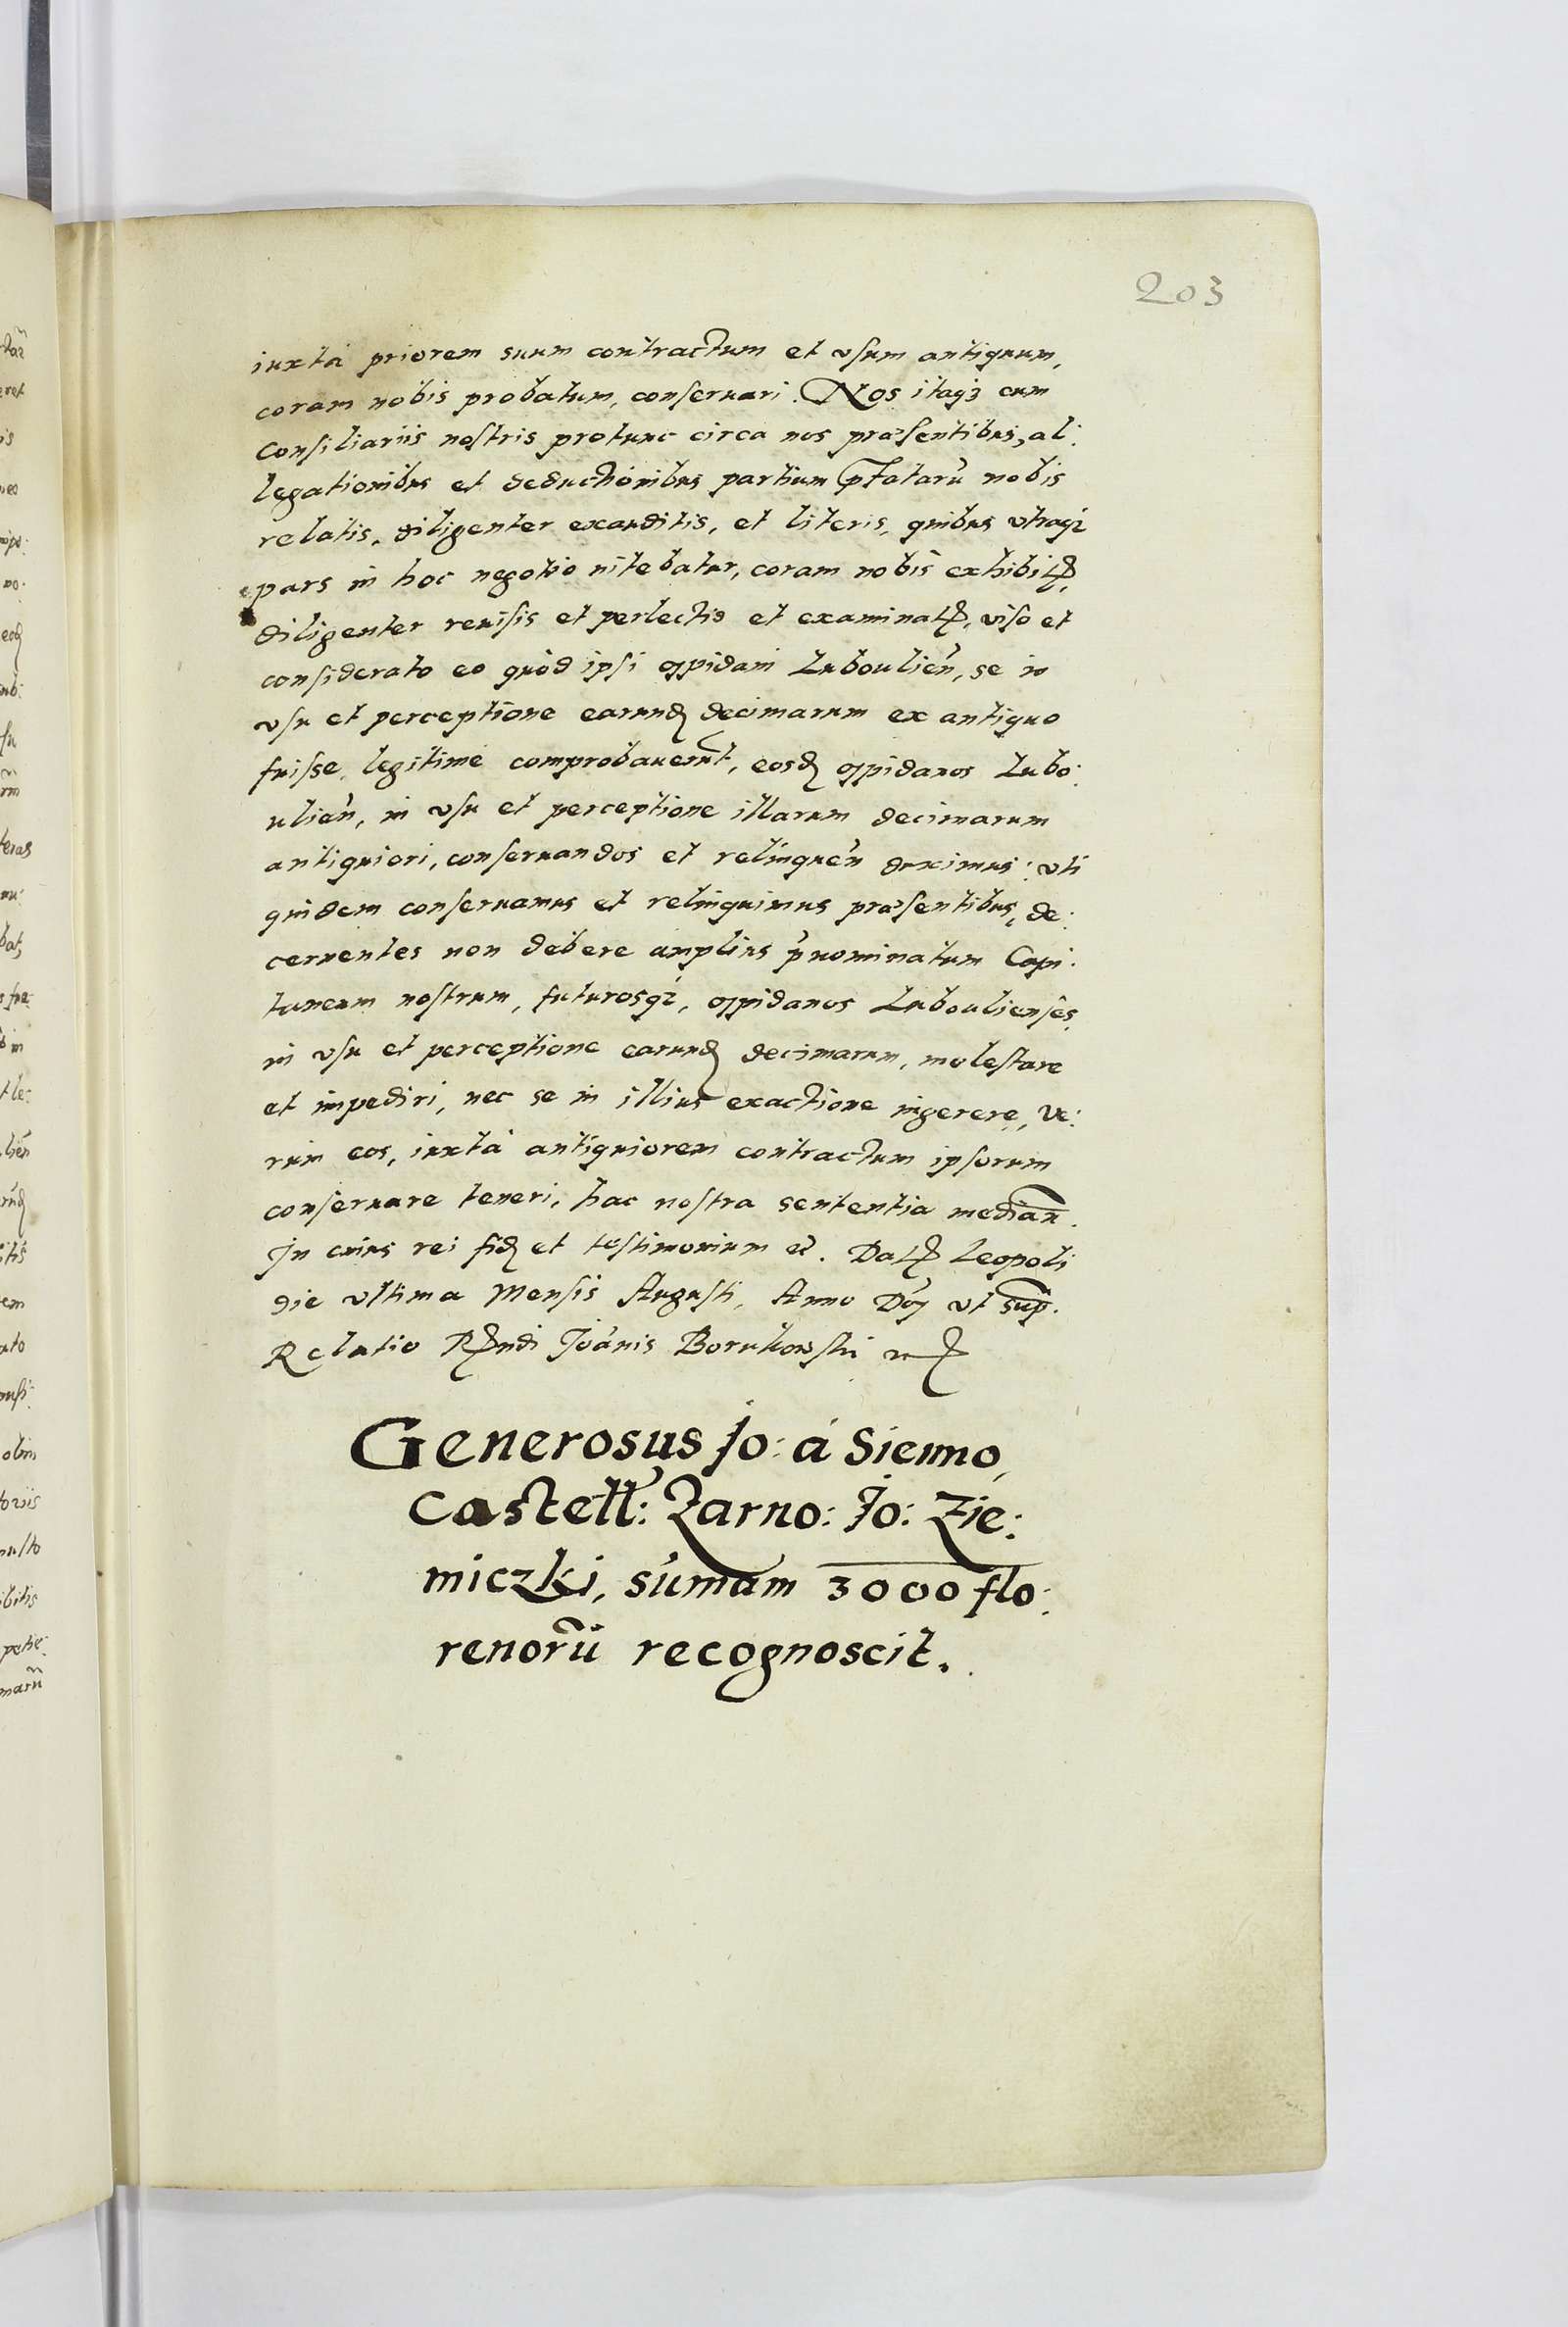 203
iuxtà priorem suum contractum et vsum antiquum,
coram nobis probatum, conseruari. Nos itaq3 cum
Consiliariis nostris protunc circa nos præsentibus, al:
legationibus et deductionibus partium pfatarũ nobis
relatis, diligenter exauditis, et literis, quibus vtraq3
pars in hoc negotio nitebatur, coram nobis exhibit,
diligenter reuisis et perlectis et examinat, viso et
considerato eo quòd ipsi oppidani Luboulień, se in
vsu et perceptione earund decimarum ex antiquo
fuisse, legitime comprobauerunt, eosd oppidanos Lubo:
ulień, in vsu et perceptione illarum decimarum
antiquiori, conseruandos et relinqueń duximus: vti
quidem conseruamus et relinquimus præsentibus, de:
cernentes non debere amplius p̃nominatum Capi:
taneum nostrum, futurosq3, oppidanos Luboulienses,
in vsu et perceptione earund decimarum, molestare
et impediri, nec se in illius exactione ingerere, ve:
rum eos, iuxtà antiquiorem contractum ipsorum
conseruare teneri, hac nostra sententia median̄.
In cuius rei fid et testimonium etc. Dat Leopoli
die vltima Mensis Augusti, Anno Dńj vt sup̄.
Relatio Rndi Joānis Borukowski
Generosus Jo: à Sienno,
Castell: Zarno: Jo: Zie:
miczki, sũmam 3000 flo:
renorũ recognoscit.